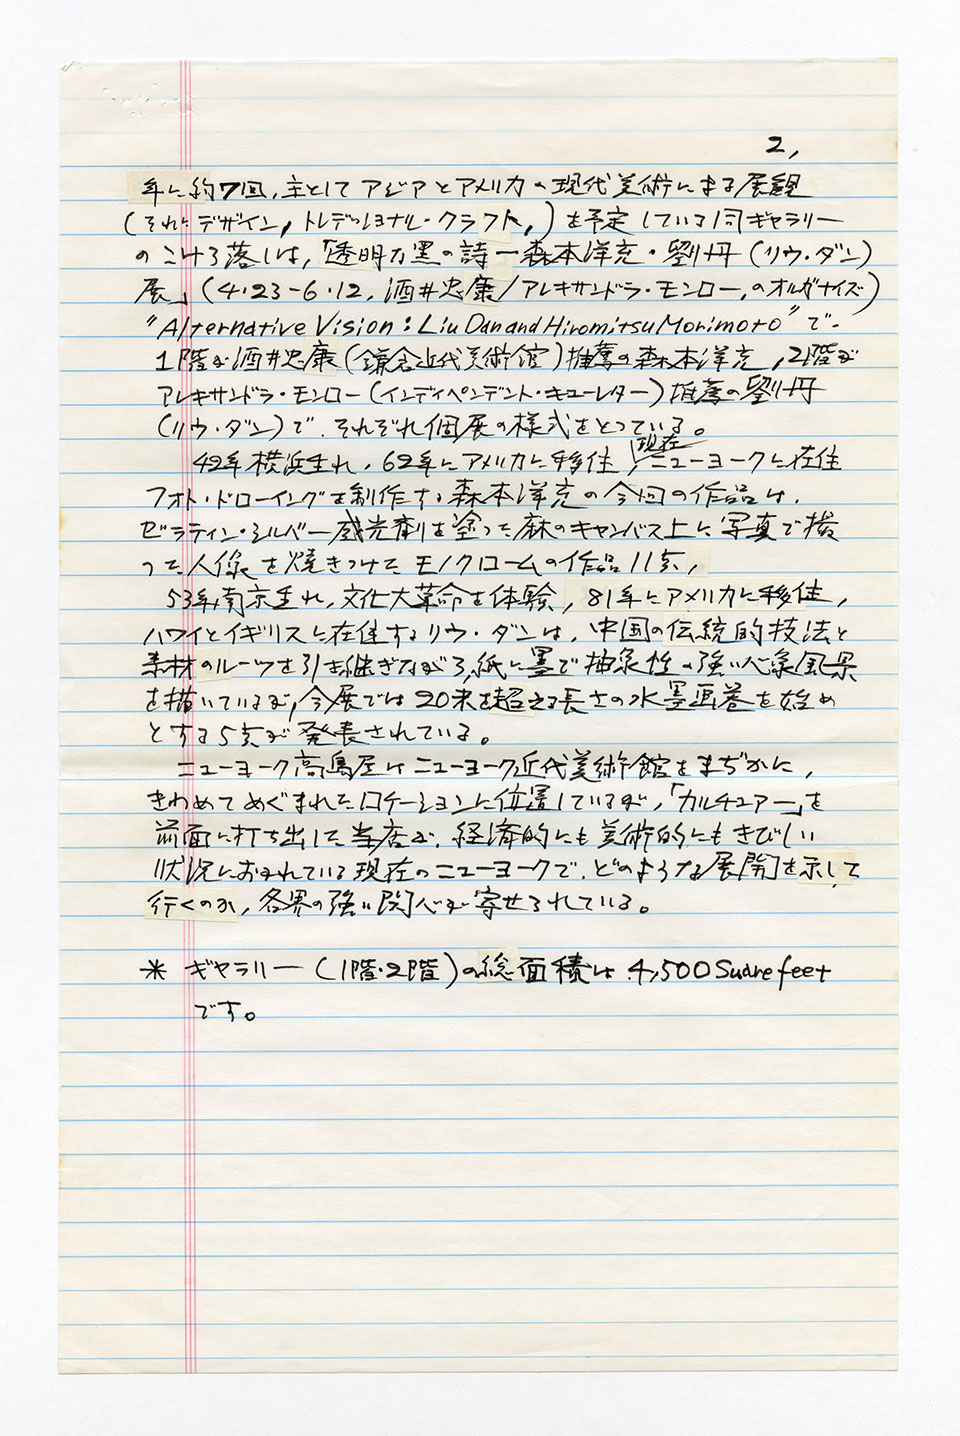 2,
年に約7回、主としてアジアとアメリカの現代美術による展観
(それにデザイン, トレディショナル・クラフト,)を予定している同ギャラリー
のこけら落しは,「透明な黒の詩ー森本洋充・劉丹(リウ・ダン)
展」(4・23-6・12, 酒井忠康/アレキサンドラ・モンロー,のオルガナイズ)
"Alternative Vision: Liu Dan and Hiromitsu Morimoto"で、
1階が酒井忠康(鎌倉近代美術館)推薦の森本洋充,2階が
アレキサンドラ・モンロー(インディペンデント・キューレター)推薦の劉丹
(リウ・ダン)で、それぞれ個展の様式をとっている。
42年横浜生れ、62年にアメリカに移住,現在ニューヨークに在住
フォト・ドローイングを制作する森本洋充の今回の作品は、
ゼラティン・シルバー感光剤を塗った麻のキャンバス上に写真で撮
った人像を焼きつけたモノクロームの作品11点,
53年,南京生れ,文化大革命を体験,81年にアメリカに移住,
ハワイとイギリスに在住するリウ・ダンは、中国の伝統的技法と
素材のルーツを引き継ぎながら,紙に墨で抽象性の強い心象風景
を描いているが,今展では20米を超える長さの水墨画巻を始め
とする5点が発表されている。
ニューヨーク高島屋はニューヨーク近代美術館をまぢかに,
きわめてめぐまれたロケーションに位置しているが,「カルチュアー」を
前面に打ち出した当店が、経済的にも美術的にもきびしい
状況におかれている現在のニューヨークで、どのような展開を示して
行くのか,各界の強い関心が寄せられている。
* ギャラリー(1階・2階)の総面積は 4,500 Suare feet
です。